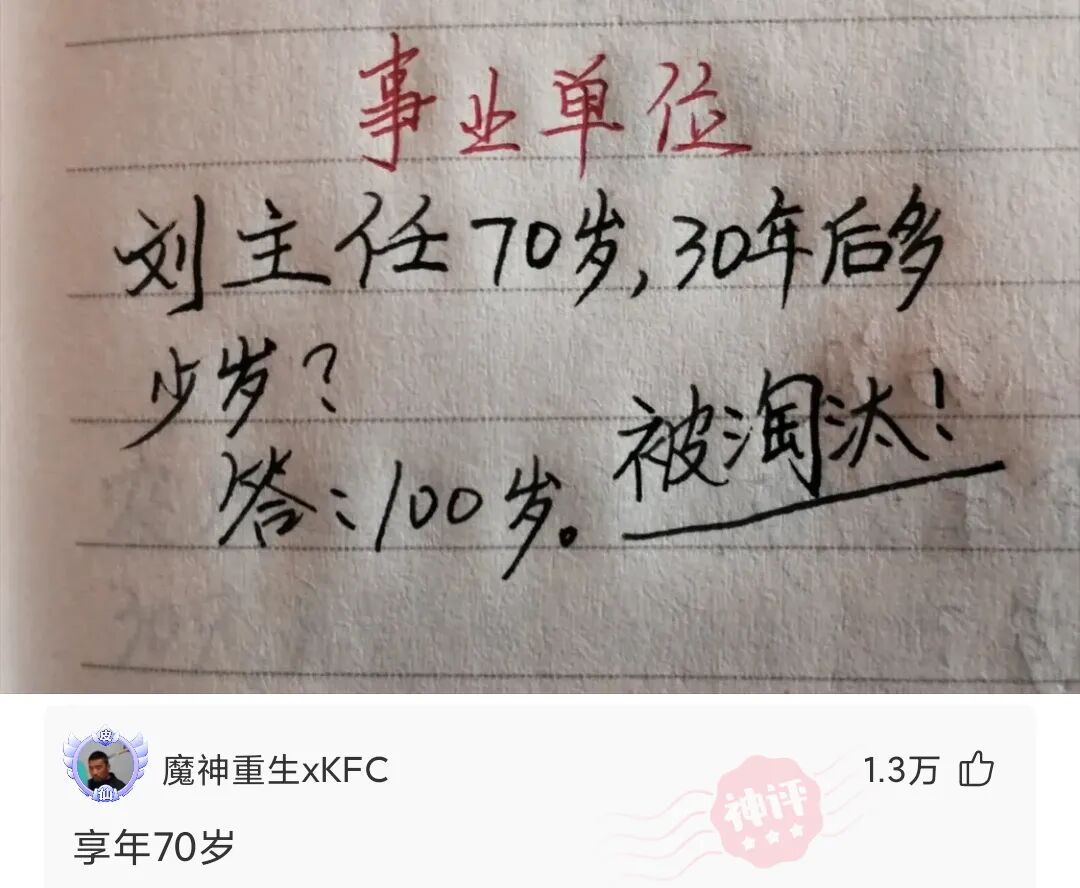 事业单位
刘主任70岁,30年后多
少岁?
被淘汰!
答:100岁。
皮
仙
魔神重生xKFC
1.3万
神评
享年70岁